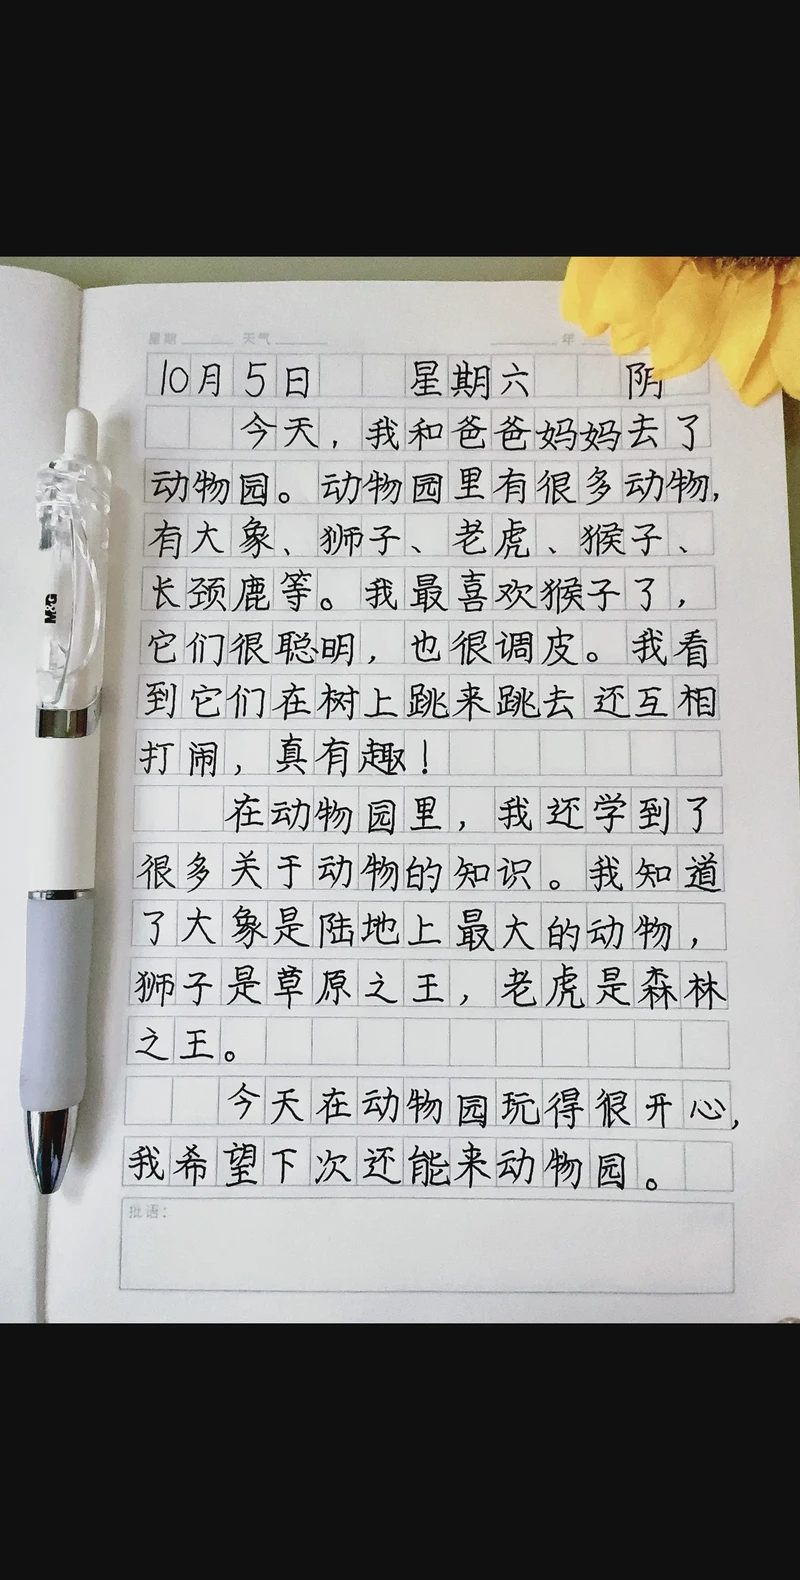 星期 天气 年
10月5日 星期六 阴
今天，我和爸爸妈妈去了
动物园。动物园里有很多动物，
有大象、狮子、老虎、猴子、
长颈鹿等。我最喜欢猴子了，
它们很聪明，也很调皮。我看
到它们在树上跳来跳去还互相
打闹，真有趣！
在动物园里，我还学到了
很多关于动物的知识。我知道
了大象是陆地上最大的动物，
狮子是草原之王，老虎是森林
之王。
今天在动物园玩得很开心，
我希望下次还能来动物园。
批语：
M&G